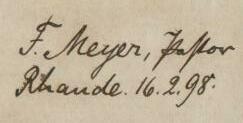 F. Meyer, Pastor
Rhaude. 16.2.98.